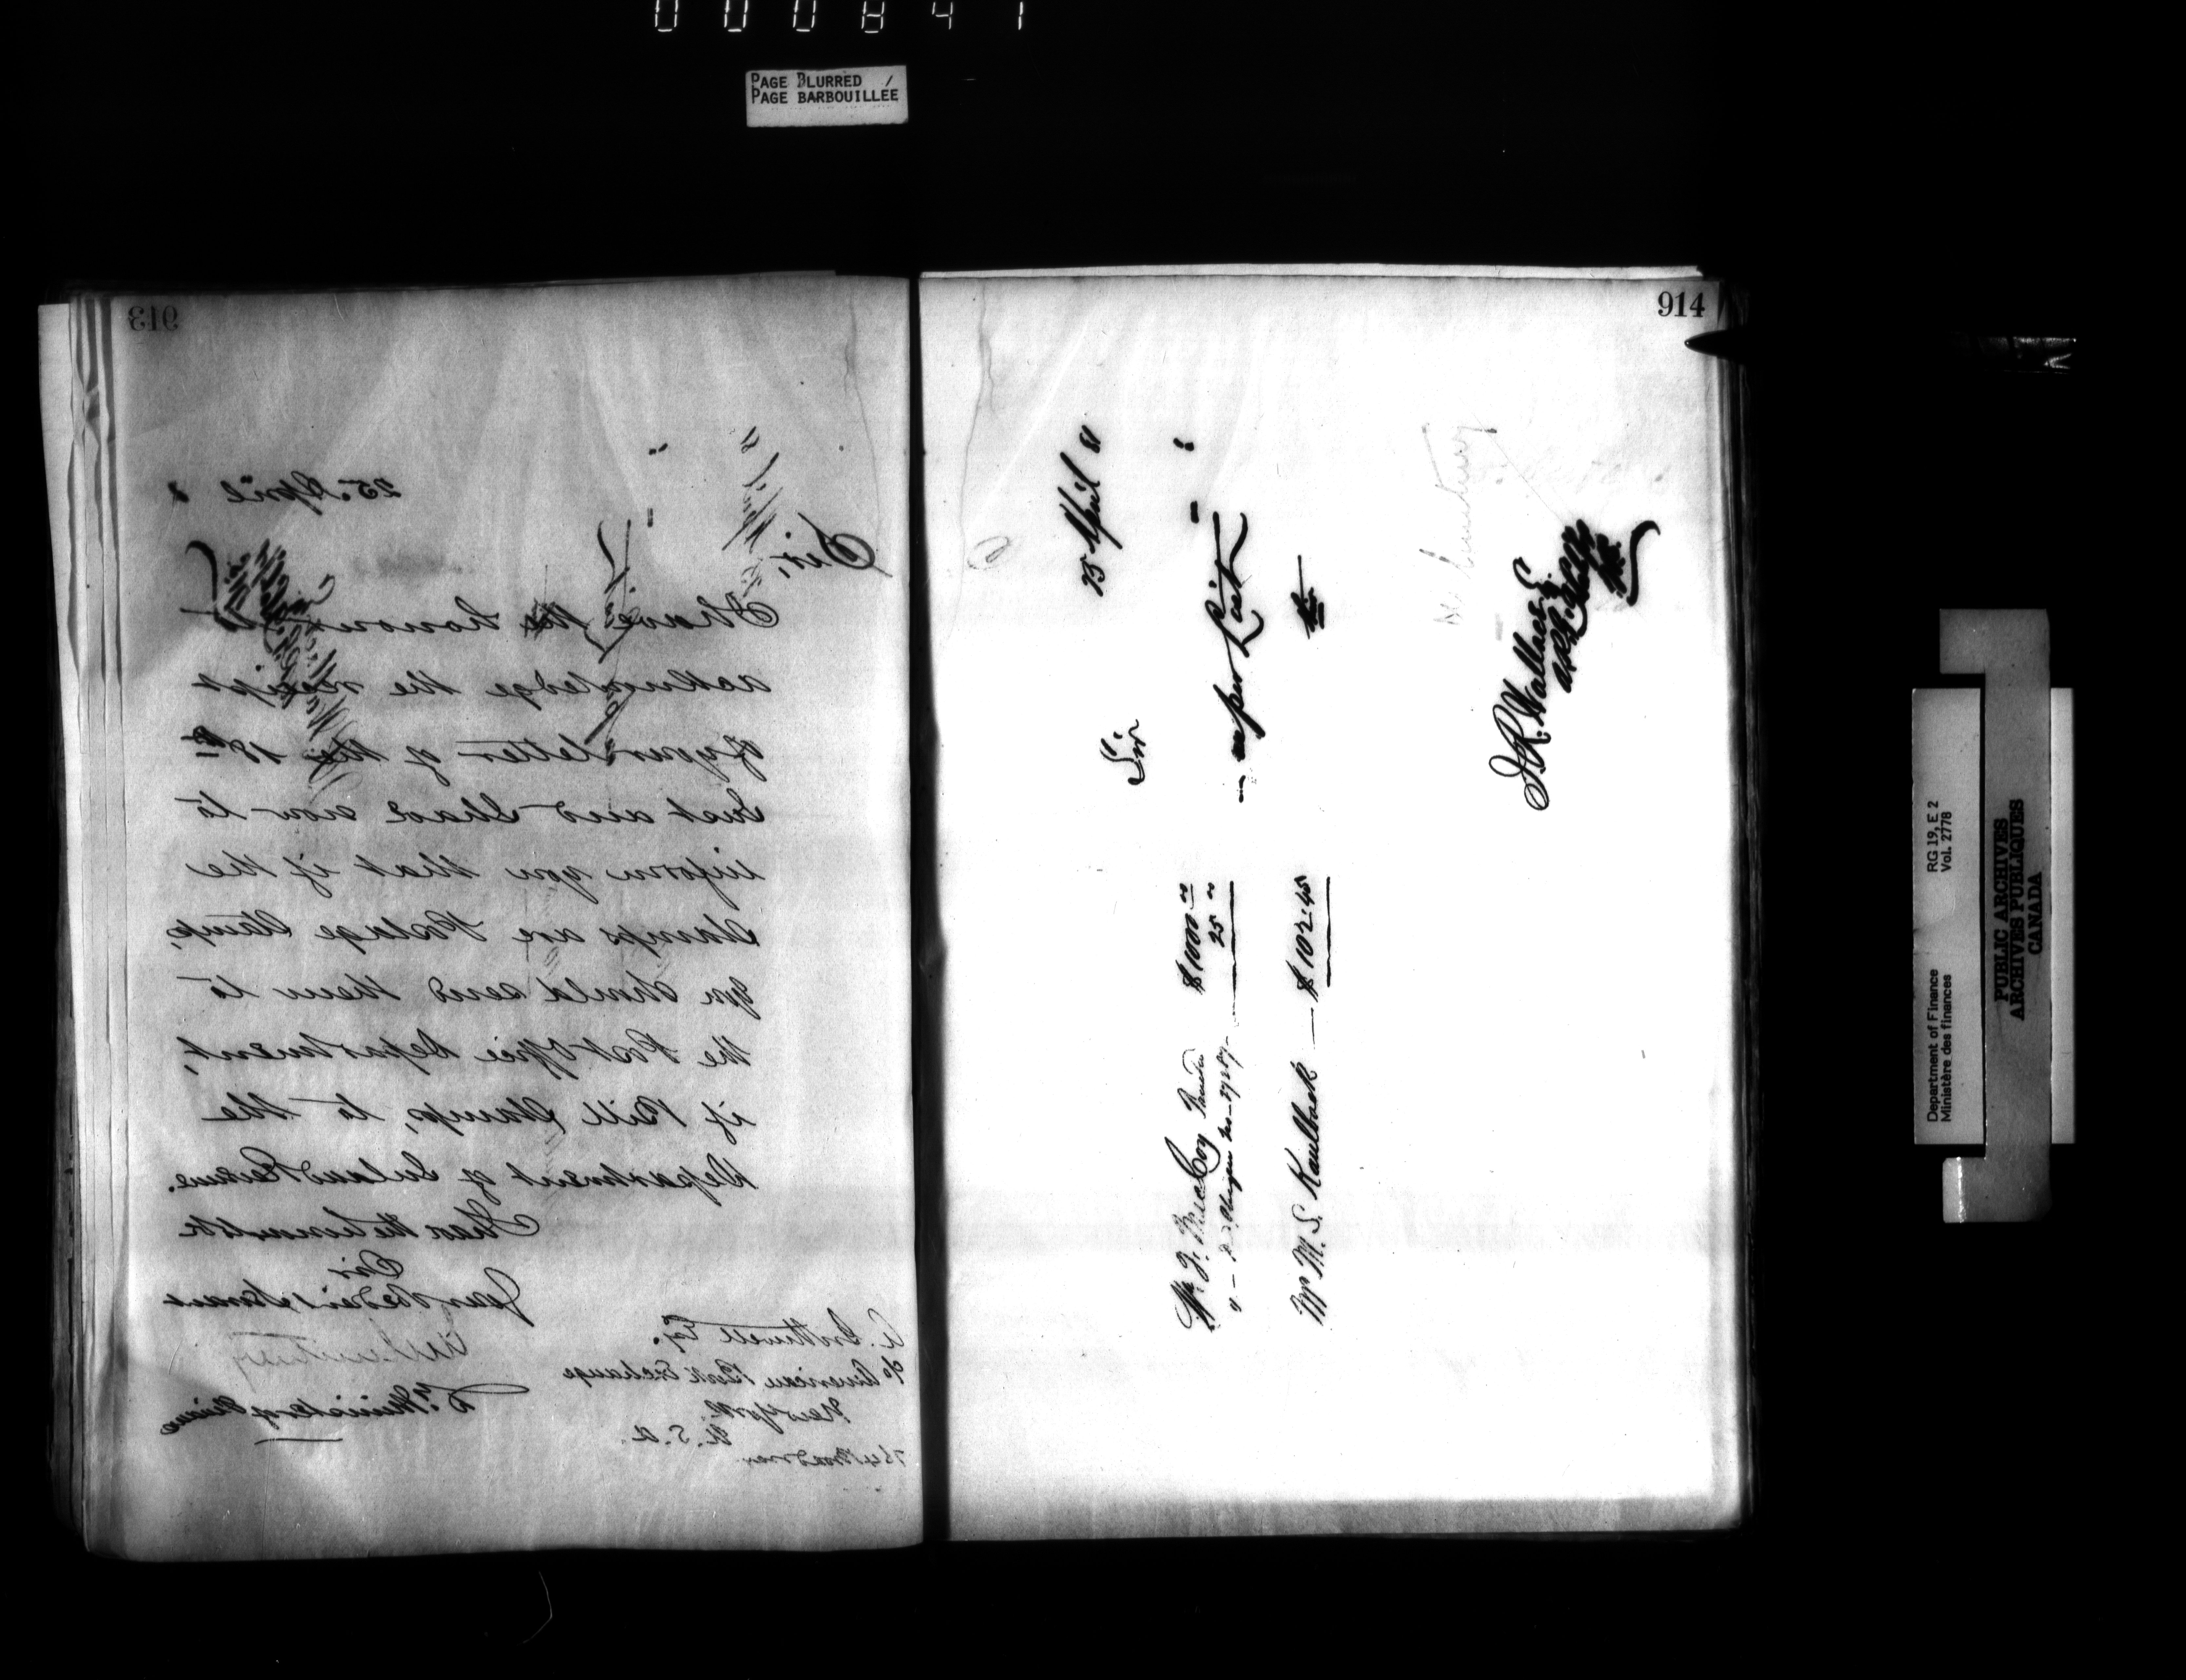 000841
PAGE BLURRED
PAGE BARBOUILLÉE
913
25 April
Sir,
I have the honour to
acknowledge the receipt
of your letter of the 18th
Inst and I have now to
inform you that if the
Stamps are Postage Stamps,
you should send them to
the Post Office Department,
if Bill Stamps, to the
Department of Inland Revenue.
I have the honor to be
Sir
Your Obedient Servant
Minister of Finance
A. Bothwell Esq.
c/o American Exchange
New York
U.S.A.
764 Broadway
914
25 April 81
Sir
- as per List
$1000
25
Mr M. S. Kaulback — $102.45
J.R. Wallace Esq
Department of Finance
Ministère des finances
RG 19, E 2
Vol. 2778
PUBLIC ARCHIVES
ARCHIVES PUBLIQUES
CANADA